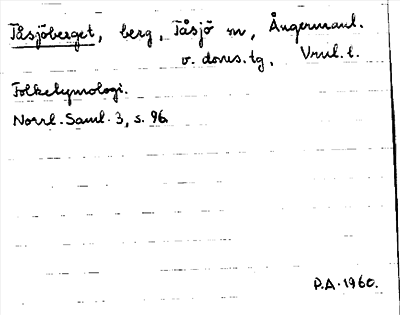 Tåsjöberget, berg, Tåsjö sn, Ångermanl.
v. doms. tg, Vrml. l.
Folketymologi.
Norrl. Saml. 3, s. 96.
P.A. 1960.